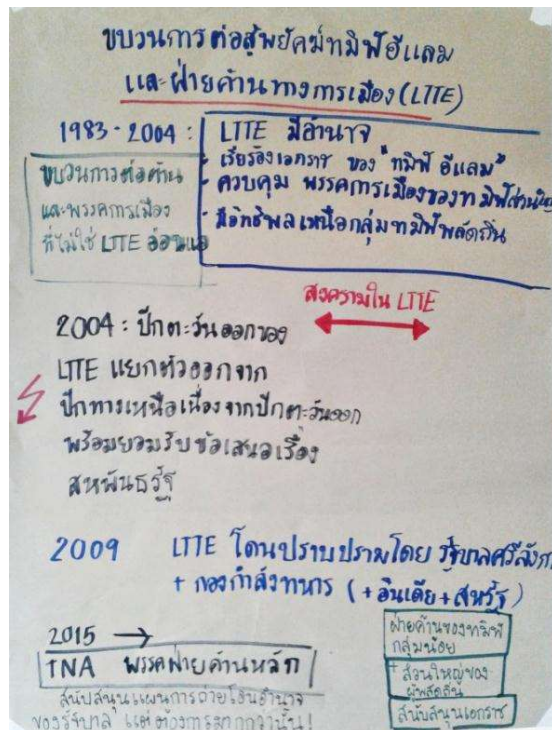 ขบวนการต่อสู้พยัคฆ์ทมิฬอีแลม
และฝ่ายค้านทางการเมือง (LTTE)
1983 - 2004 :
LTTE มีอำนาจ
- เรียร้องเอกราช ของ "ทมิฬ อีแลม"
- ควบคุม พรรคการเมืองของทมิฬส่วนใหญ่
- มีอิทธิพลเหนือกลุ่มทมิฬพลัดถิ่น
ขบวนการต่อต้าน
และพรรคการเมือง
ที่ไม่ใช่ LTTE อ่อนแอ
สงครามใน LTTE
2004 : ปีกตะวันออกของ
LTTE แยกตัวออกจาก
ปีกทางเหนือเนื่องจากปีกตะวันออก
พร้อมยอมรับข้อเสนอเรื่อง
สหพันธรัฐ
2009 LTTE โดนปราบปรามโดย รัฐบาลศรีลังกา
+ กองกำลังทหาร (+อินเดีย+สหรัฐ)
2015 →
TNA พรรคฝ่ายค้านหลัก
สนับสนุนแผนการถ่ายโอนอำนาจ
ของรัฐบาล แต่ต้องการมากกว่านั้น!
ฝ่ายค้านของทมิฬ
กลุ่มน้อย
+ ส่วนใหญ่ของ
ผู้พลัดถิ่น
สนับสนุนเอกราช